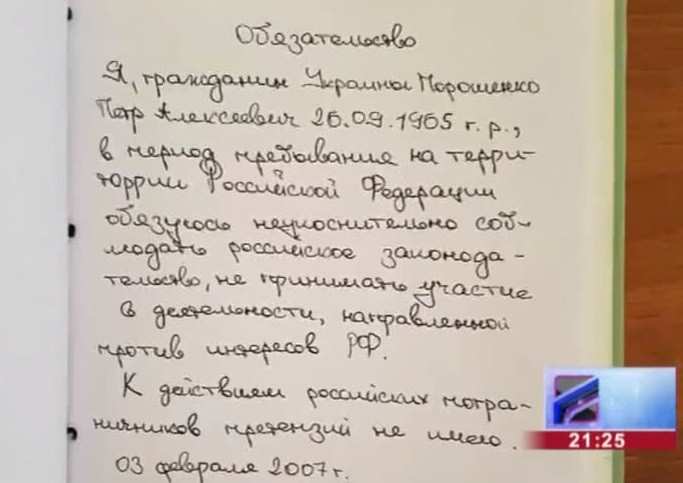 Обязательство
Я, гражданин Украины Порошенко
Петр Алексеевич 26.09.1965 г.р.,
в период пребывание на терри-
торрии Российской Федерации
обязуюсь неукоснительно соб-
людать российское законода-
тельство, не принимать участие
в деятельности, направленной
против интересов РФ.
К действием российских погра-
ничников претензий не имею.
03 февраля 2007г.
21:25